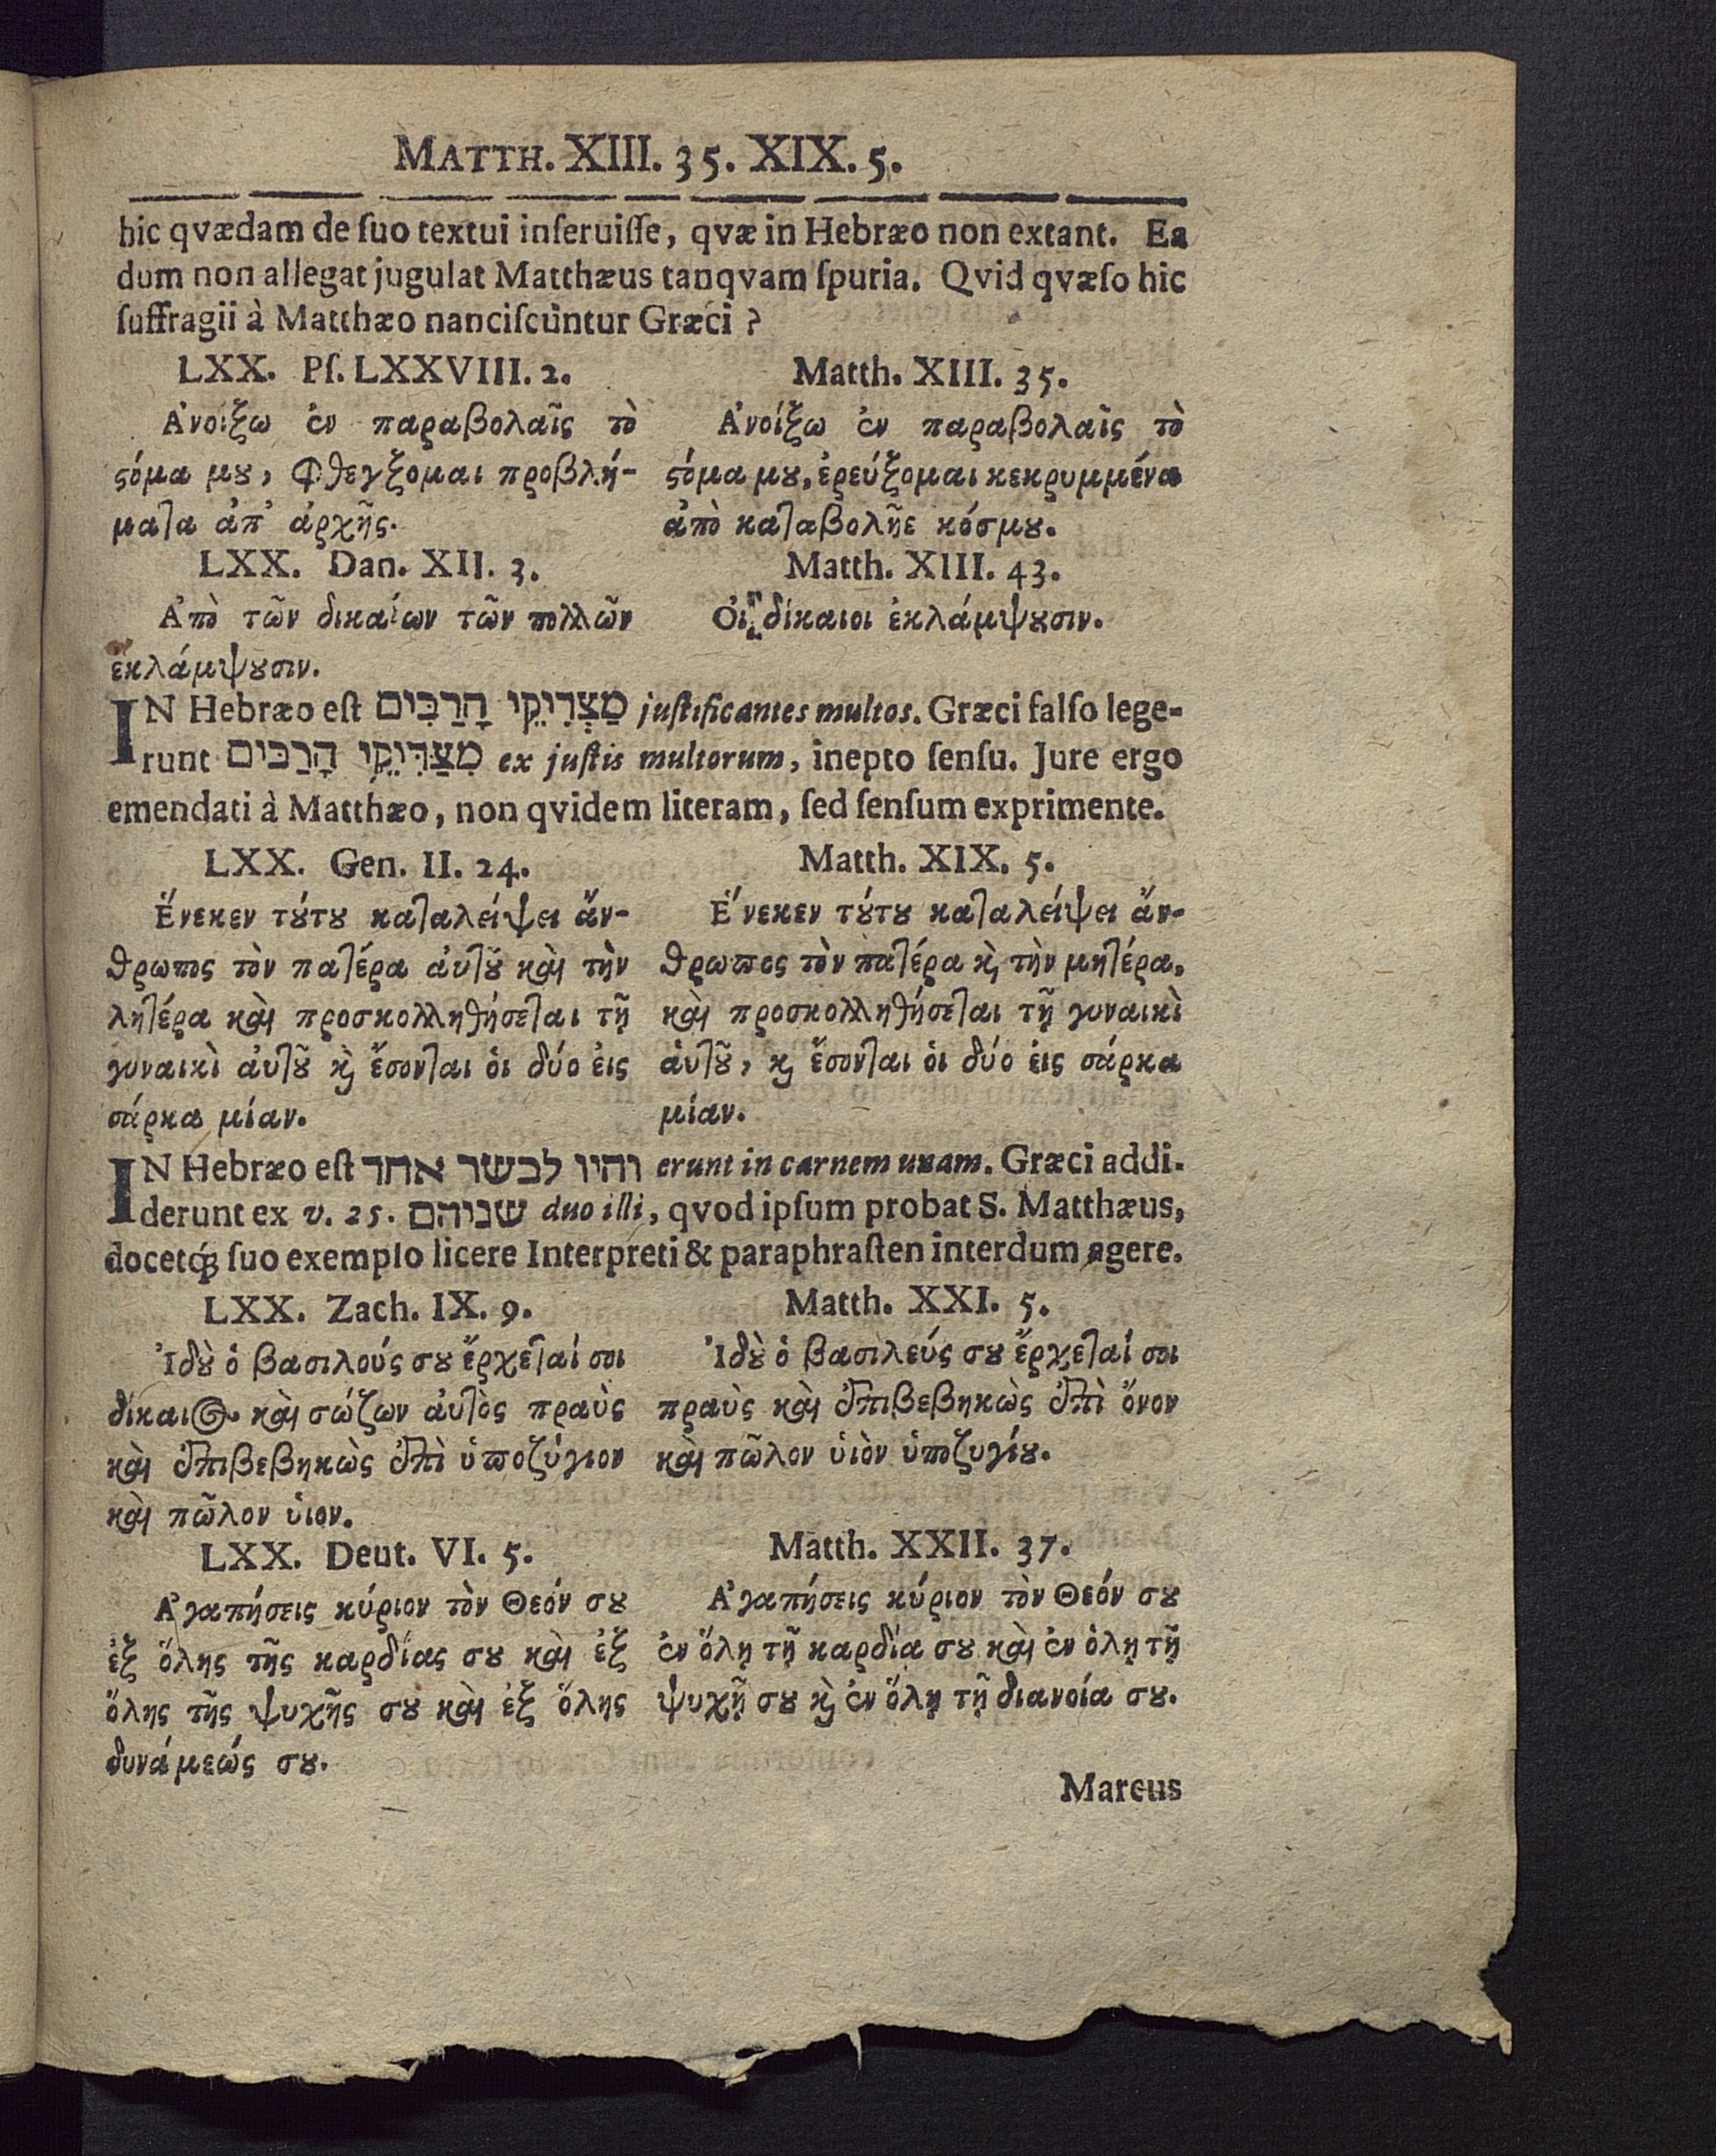 MATTH. XIII. 35. XIX. 5.
hic qvædam de ſuo textui inſeruiſſe, qvæ in Hebræo non extant. Ea
dum non allegat jugulat Matthæus tanqvam ſpuria. Qvid qvæſo hic
ſuffragii à Matthæo nanciſcuntur Græci?
LXX. Pſ. LXXVIII. 2.
Ἀνοίξω ἐν παραβολαῖς τὸ
ϛόμα μȣ, Φθεγξομαι προβλή-
ματα ἀπ' ἀρχῆς.
LXX. Dan. XII. 3.
Ἀπὸ τῶν δικαίων τῶν πολλῶν
ἐκλάμψȣσιν.
Matth. XIII. 35.
Ἀνοίξω ἐν παραβολαῖς τὸ
ϛόμα μȣ, ἐρεύξομαι κεκρυμμένα
ἀπὸ καταβολῆε κόσμȣ.
Matth. XIII. 43.
Ὀι δίκαιοι ἐκλάμψȣσιν.
IN Hebræo eſt מַצְדִיקֵי הָרַבִּים juſtificantes multos. Græci falſo lege-
runt מִצַּדִּיקֵי הָרַבִּים ex juſtis multorum, inepto ſenſu. Jure ergo
emendati à Matthæo, non qvidem literam, ſed ſenſum exprimente.
LXX. Gen. II. 24.
Ἕνεκεν τȣ́τȣ καταλείψει ἄν-
θρωπος τὸν πατέρα ἀυτȣ̃ καὶ τὴν
λητέρα καὶ προσκολληθήσεται τῇ
γυναικὶ ἀυτȣ̃ ϗ ἔσονται ὁι δύο ἐις
σάρκα μίαν.
Matth. XIX. 5.
Ἕνεκεν τȣ́τȣ καταλείψει ἄν-
θρωπος τὸν πατέρα ϗ τὴν μητέρα,
καὶ προσκολληθήσεται τῇ γυναικὶ
ἀυτȣ̃, ϗ ἔσονται ὁι δύο ἐις σάρκα
μίαν.
IN Hebræo eſt והיו לבשר אחד erunt in carnem unam. Græci addi-
derunt ex v. 25. שניהם duo illi, qvod ipſum probat S. Matthæus,
docetq́; ſuo exemplo licere Interpreti & paraphraſten interdum agere.
LXX. Zach. IX. 9.
Ἰδȣ̀ ὁ βασιλούς σȣ ἔρχεταί σοι
δίκαιος καὶ σώζων ἀυτὸς πραὺς
καὶ ἐπιβεβηκὼς ἐπὶ ὑποζύγιον
καὶ πῶλον ὑιον.
LXX. Deut. VI. 5.
Ἀγαπήσεις κύριον τὸν Θεόν σȣ
ἐξ ὅλης τῆς καρδίας σȣ καὶ ἐξ
ὅλης τῆς ψυχῆς σȣ καὶ ἐξ ὅλης
δυνάμεώς σȣ.
Matth. XXI. 5.
Ἰδȣ̀ ὁ βασιλεύς σȣ ἔρχεταί σοι
πραὺς καὶ ἐπιβεβηκὼς ἐπὶ ὄνον
καὶ πῶλον ὑιὸν ὑποζυγίȣ.
Matth. XXII. 37.
Ἀγαπήσεις κύριον τὸν Θεόν σȣ
ἐν ὅλῃ τῇ καρδία σȣ καὶ ἐν ὁλῃ τῇ
ψυχῇ σȣ ϗ ἐν ὅλῃ τῇ διανοία σȣ.
Marcus